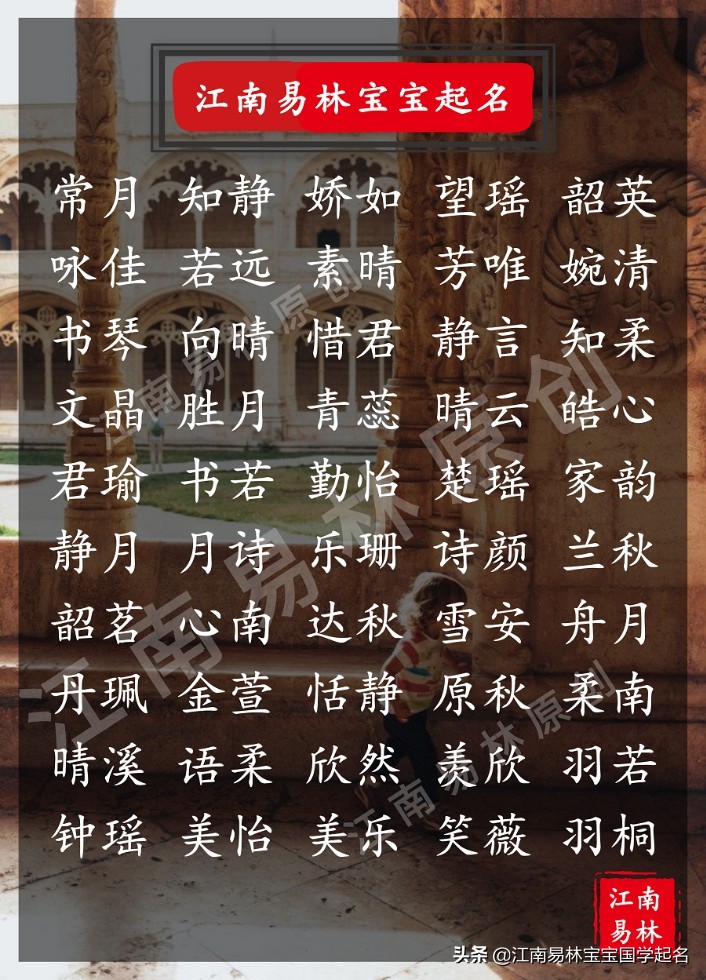 江南易林宝宝起名
常月 知静 娇如 望瑶 韶英
咏佳 若远 素晴 芳唯 婉清
书琴 向晴 惜君 静言 知柔
文晶 胜月 青蕊 晴云 皓心
君瑜 书若 勤怡 楚瑶 家韵
静月 月诗 乐珊 诗颜 兰秋
韶茗 心南 达秋 雪安 舟月
丹珮 金萱 恬静 原秋 柔南
晴溪 语柔 欣然 羡欣 羽若
钟瑶 美怡 美乐 笑薇 羽桐
江南易林原创
江南易林原创
江南易林原创
江南
易林
头条 @江南易林宝宝国学起名